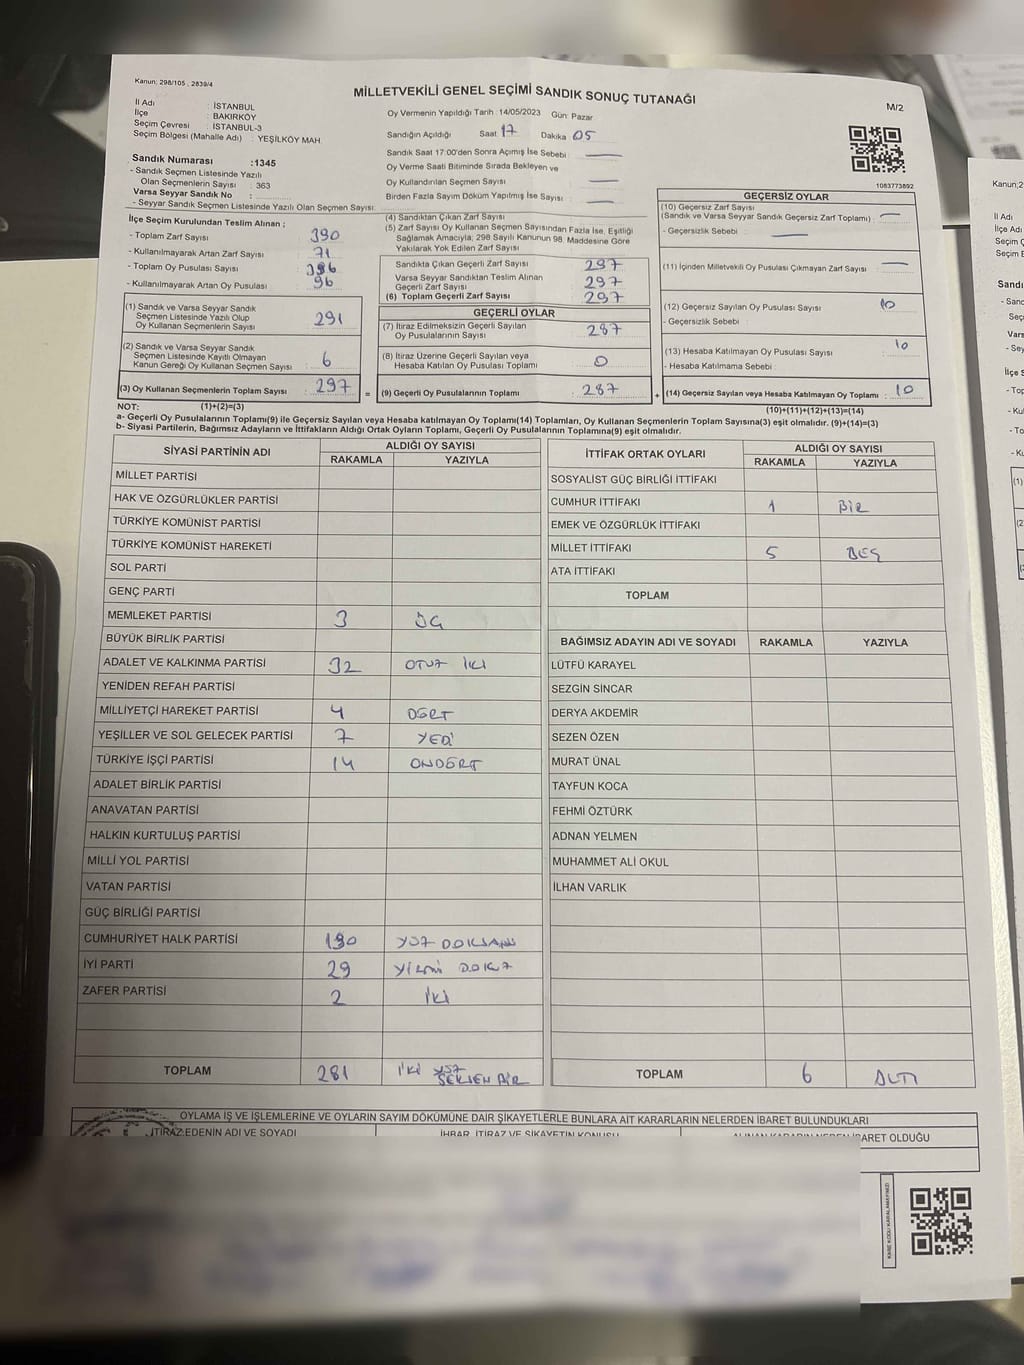 Kanun: 298/105 , 2839/4
MİLLETVEKİLİ GENEL SEÇİMİ SANDIK SONUÇ TUTANAĞI
M/2
İl Adı : İSTANBUL
İlçe : BAKIRKÖY
Seçim Çevresi : İSTANBUL-3
Seçim Bölgesi (Mahalle Adı) : YEŞİLKÖY MAH
Sandık Numarası :1345
- Sandık Seçmen Listesinde Yazılı
Olan Seçmenlerin Sayısı : 363
Varsa Seyyar Sandık No :
- Seyyar Sandık Seçmen Listesinde Yazılı Olan Seçmen Sayısı:
Oy Vermenin Yapıldığı Tarih :14/05/2023 Gün: Pazar
Sandığın Açıldığı Saat 17 Dakika 05
Sandık Saat 17:00'den Sonra Açımış İse Sebebi :
Oy Verme Saati Bitiminde Sırada Bekleyen ve
Oy Kullandırılan Seçmen Sayısı :
Birden Fazla Sayım Döküm Yapılmış İse Sayısı :
1083773892
İlçe Seçim Kurulundan Teslim Alınan ;
- Toplam Zarf Sayısı : 390
- Kullanılmayarak Artan Zarf Sayısı : 71
- Toplam Oy Pusulası Sayısı : 386
- Kullanılmayarak Artan Oy Pusulası : 96
(1) Sandık ve Varsa Seyyar Sandık
Seçmen Listesinde Yazılı Olup
Oy Kullanan Seçmenlerin Sayısı : 291
(2) Sandık ve Varsa Seyyar Sandık
Seçmen Listesinde Kayıtlı Olmayan
Kanun Gereği Oy Kullanan Seçmen Sayısı : 6
(3) Oy Kullanan Seçmenlerin Toplam Sayısı : 297
(1)+(2)=(3)
(4) Sandıktan Çıkan Zarf Sayısı :
(5) Zarf Sayısı Oy Kullanan Seçmen Sayısından Fazla İse, Eşitliği
Sağlamak Amacıyla; 298 Sayılı Kanunun 98. Maddesine Göre
Yakılarak Yok Edilen Zarf Sayısı :
Sandıkta Çıkan Geçerli Zarf Sayısı : 297
Varsa Seyyar Sandıktan Teslim Alınan
Geçerli Zarf Sayısı : 297
(6) Toplam Geçerli Zarf Sayısı : 297
GEÇERLİ OYLAR
(7) İtiraz Edilmeksizin Geçerli Sayılan
Oy Pusulalarının Sayısı : 287
(8) İtiraz Üzerine Geçerli Sayılan veya
Hesaba Katılan Oy Pusulası Toplamı : 0
= (9) Geçerli Oy Pusulalarının Toplamı : 287
GEÇERSİZ OYLAR
(10) Geçersiz Zarf Sayısı
(Sandık ve Varsa Seyyar Sandık Geçersiz Zarf Toplamı) :
- Geçersizlik Sebebi :
(11) İçinden Milletvekili Oy Pusulası Çıkmayan Zarf Sayısı :
(12) Geçersiz Sayılan Oy Pusulası Sayısı : 10
- Geçersizlik Sebebi :
(13) Hesaba Katılmayan Oy Pusulası Sayısı : 10
- Hesaba Katılmama Sebebi :
+ (14) Geçersiz Sayılan veya Hesaba Katılmayan Oy Toplamı : 10
(10)+(11)+(12)+(13)=(14)
NOT:
a- Geçerli Oy Pusulalarının Toplamı(9) ile Geçersiz Sayılan veya Hesaba katılmayan Oy Toplamı(14) Toplamları, Oy Kullanan Seçmenlerin Toplam Sayısına(3) eşit olmalıdır. (9)+(14)=(3)
b- Siyasi Partilerin, Bağımsız Adayların ve İttifakların Aldığı Oy Sayısı Toplamı, Geçerli Oy Pusulalarının Toplamına(9) eşit olmalıdır.
SİYASİ PARTİNİN ADI ALDIĞI OY SAYISI
RAKAMLA YAZIYLA
MİLLET PARTİSİ
HAK VE ÖZGÜRLÜKLER PARTİSİ
TÜRKİYE KOMÜNİST PARTİSİ
TÜRKİYE KOMÜNİST HAREKETİ
SOL PARTİ
GENÇ PARTİ
MEMLEKET PARTİSİ 3 ÜÇ
BÜYÜK BİRLİK PARTİSİ
ADALET VE KALKINMA PARTİSİ 32 OTUZ İKİ
YENİDEN REFAH PARTİSİ
MİLLİYETÇİ HAREKET PARTİSİ 4 DÖRT
YEŞİLLER VE SOL GELECEK PARTİSİ 7 YEDİ
TÜRKİYE İŞÇİ PARTİSİ 14 ONDÖRT
ADALET BİRLİK PARTİSİ
ANAVATAN PARTİSİ
HALKIN KURTULUŞ PARTİSİ
MİLLİ YOL PARTİSİ
VATAN PARTİSİ
GÜÇ BİRLİĞİ PARTİSİ
CUMHURİYET HALK PARTİSİ 190 YÜZ DOKSAN
İYİ PARTİ 29 YİRMİ DOKUZ
ZAFER PARTİSİ 2 İKİ
TOPLAM 281 İKİ YÜZ SEKSEN BİR
İTTİFAK ORTAK OYLARI ALDIĞI OY SAYISI
RAKAMLA YAZIYLA
SOSYALİST GÜÇ BİRLİĞİ İTTİFAKI
CUMHUR İTTİFAKI 1 BİR
EMEK VE ÖZGÜRLÜK İTTİFAKI
MİLLET İTTİFAKI 5 BEŞ
ATA İTTİFAKI
TOPLAM
BAĞIMSIZ ADAYIN ADI VE SOYADI RAKAMLA YAZIYLA
LÜTFÜ KARAYEL
SEZGİN SİNCAR
DERYA AKDEMİR
SEZEN ÖZEN
MURAT ÜNAL
TAYFUN KOCA
FEHMİ ÖZTÜRK
ADNAN YELMEN
MUHAMMET ALİ OKUL
İLHAN VARLIK
TOPLAM 6 ALTI
OYLAMA İŞ VE İŞLEMLERİNE VE OYLARIN SAYIM DÖKÜMÜNE DAİR ŞİKAYETLERLE BUNLARA AİT KARARLARIN NELERDEN İBARET BULUNDUKLARI
İTİRAZ EDENİN ADI VE SOYADI İHBAR, İTİRAZ VE ŞİKAYETİN KONUSU ALINAN KARARIN NEDEN İBARET OLDUĞU
KARE KODU KARALAMAYINIZ!